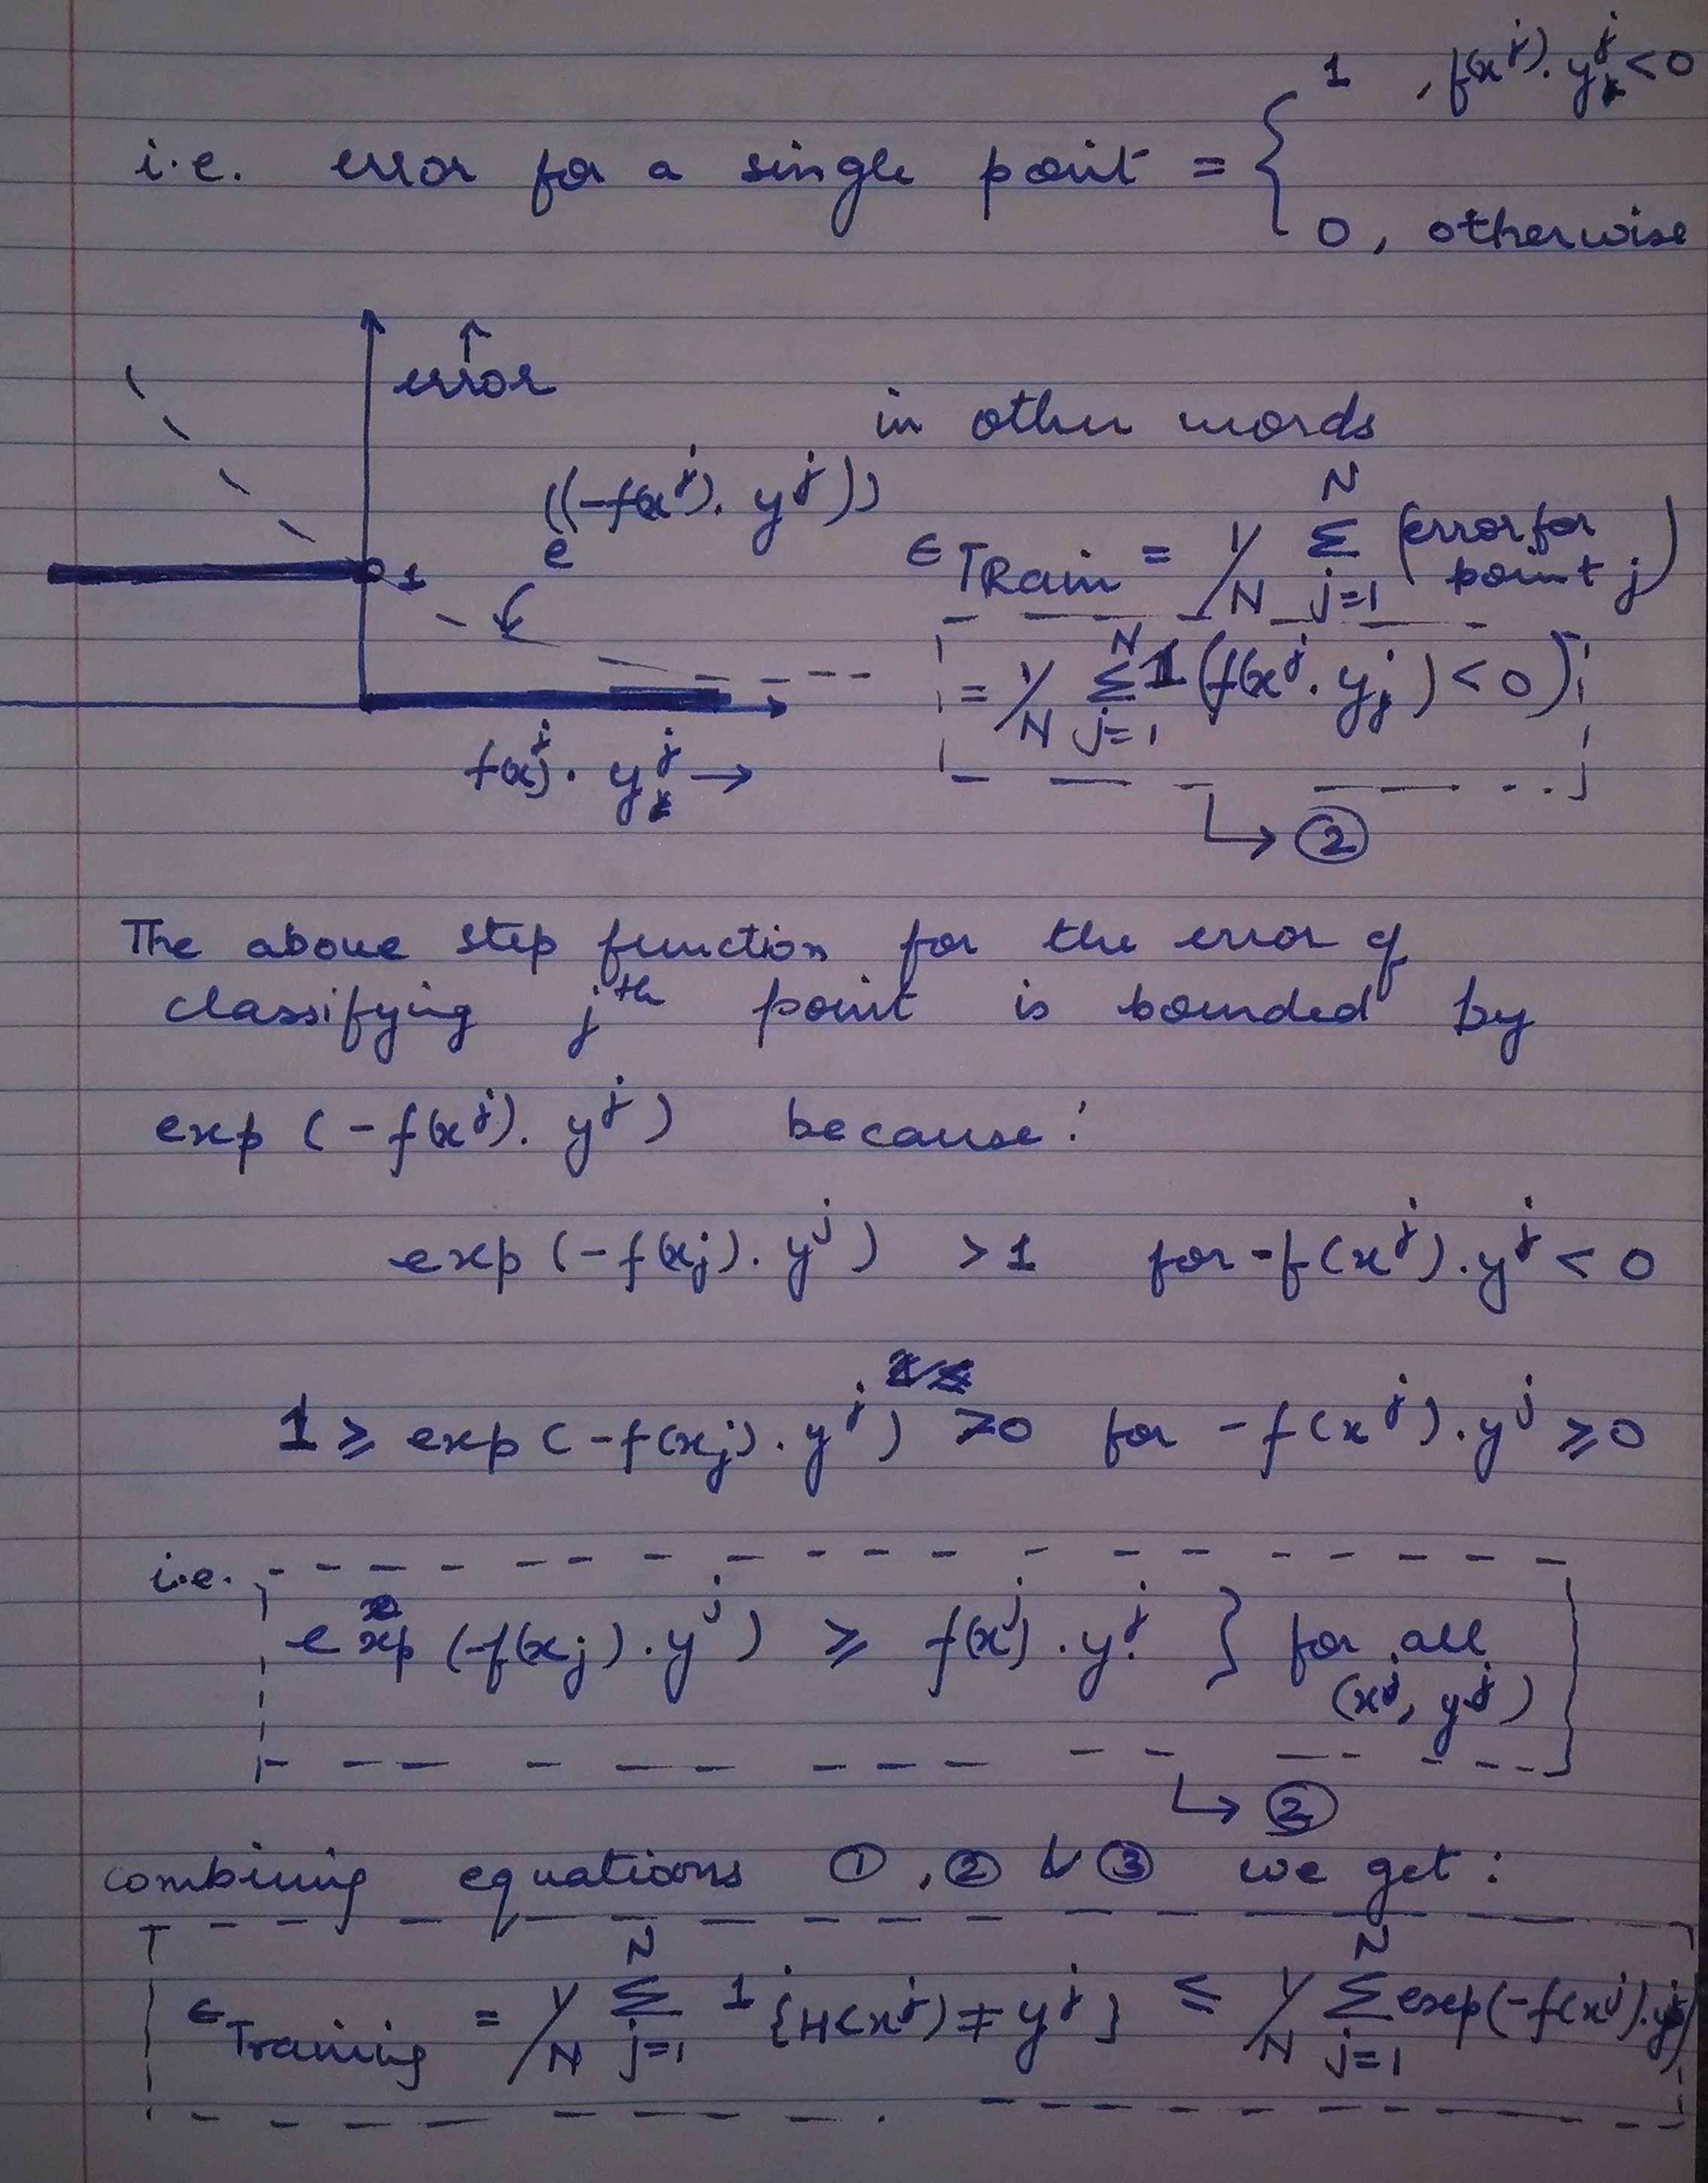 1 , f(x^j). y^j < 0
i.e. error for a single point = {
0, otherwise
↑
error
in other words
e^((-f(x^j). y^j))
1
ϵ_TRain = 1/N Σ_{j=1}^{N} (error for point j)
= 1/N Σ_{j=1}^{N} 1(f(x^j. y_j^j) < 0)
f(x_j^j). y^j →
↳ ②
The above step function for the error of
classifying j^th point is bounded by
exp (-f(x^j). y^j) because:
exp (-f(x_j). y^j) > 1 for -f(x^j). y^j < 0
1 ≥ exp (-f(x_j). y^j) >0 for -f(x^j). y^j ≥ 0
i.e.
exp (-f(x_j). y^j) ≥ f(x^j). y^j } for all
(x^j, y^j)
↳ ②
combining equations ①, ② & ③ we get:
ϵ_Training = 1/N Σ_{j=1}^{N} 1{H(x^j) ≠ y^j} ≤ 1/N Σ_{j=1}^{N} exp(-f(x^j). y^j)